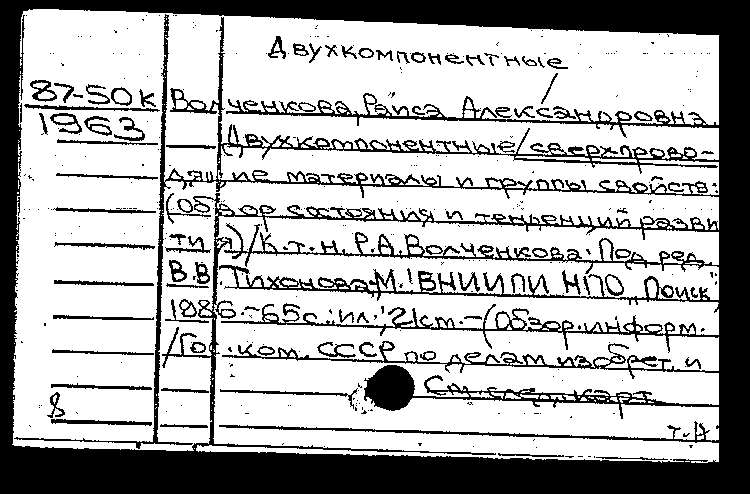 Двухкомпонентные
87-50к Волченкова, Раиса Александровна.
1963
Двухкомпонентные/сверхпрово-
дящие материалы и группы свойств:
(Обзор состояния и тенденций разви
тия)/К.т.н. Р.А. Волченкова; Под ред.
В.В. Тихонова, М.: ВНИИПИ НПО „Поиск"
1986.-65с.:ил.; 21см.-(Обзор.информ.
/Гос.ком. СССР по делам изобрет. и
См. след. карт.
8